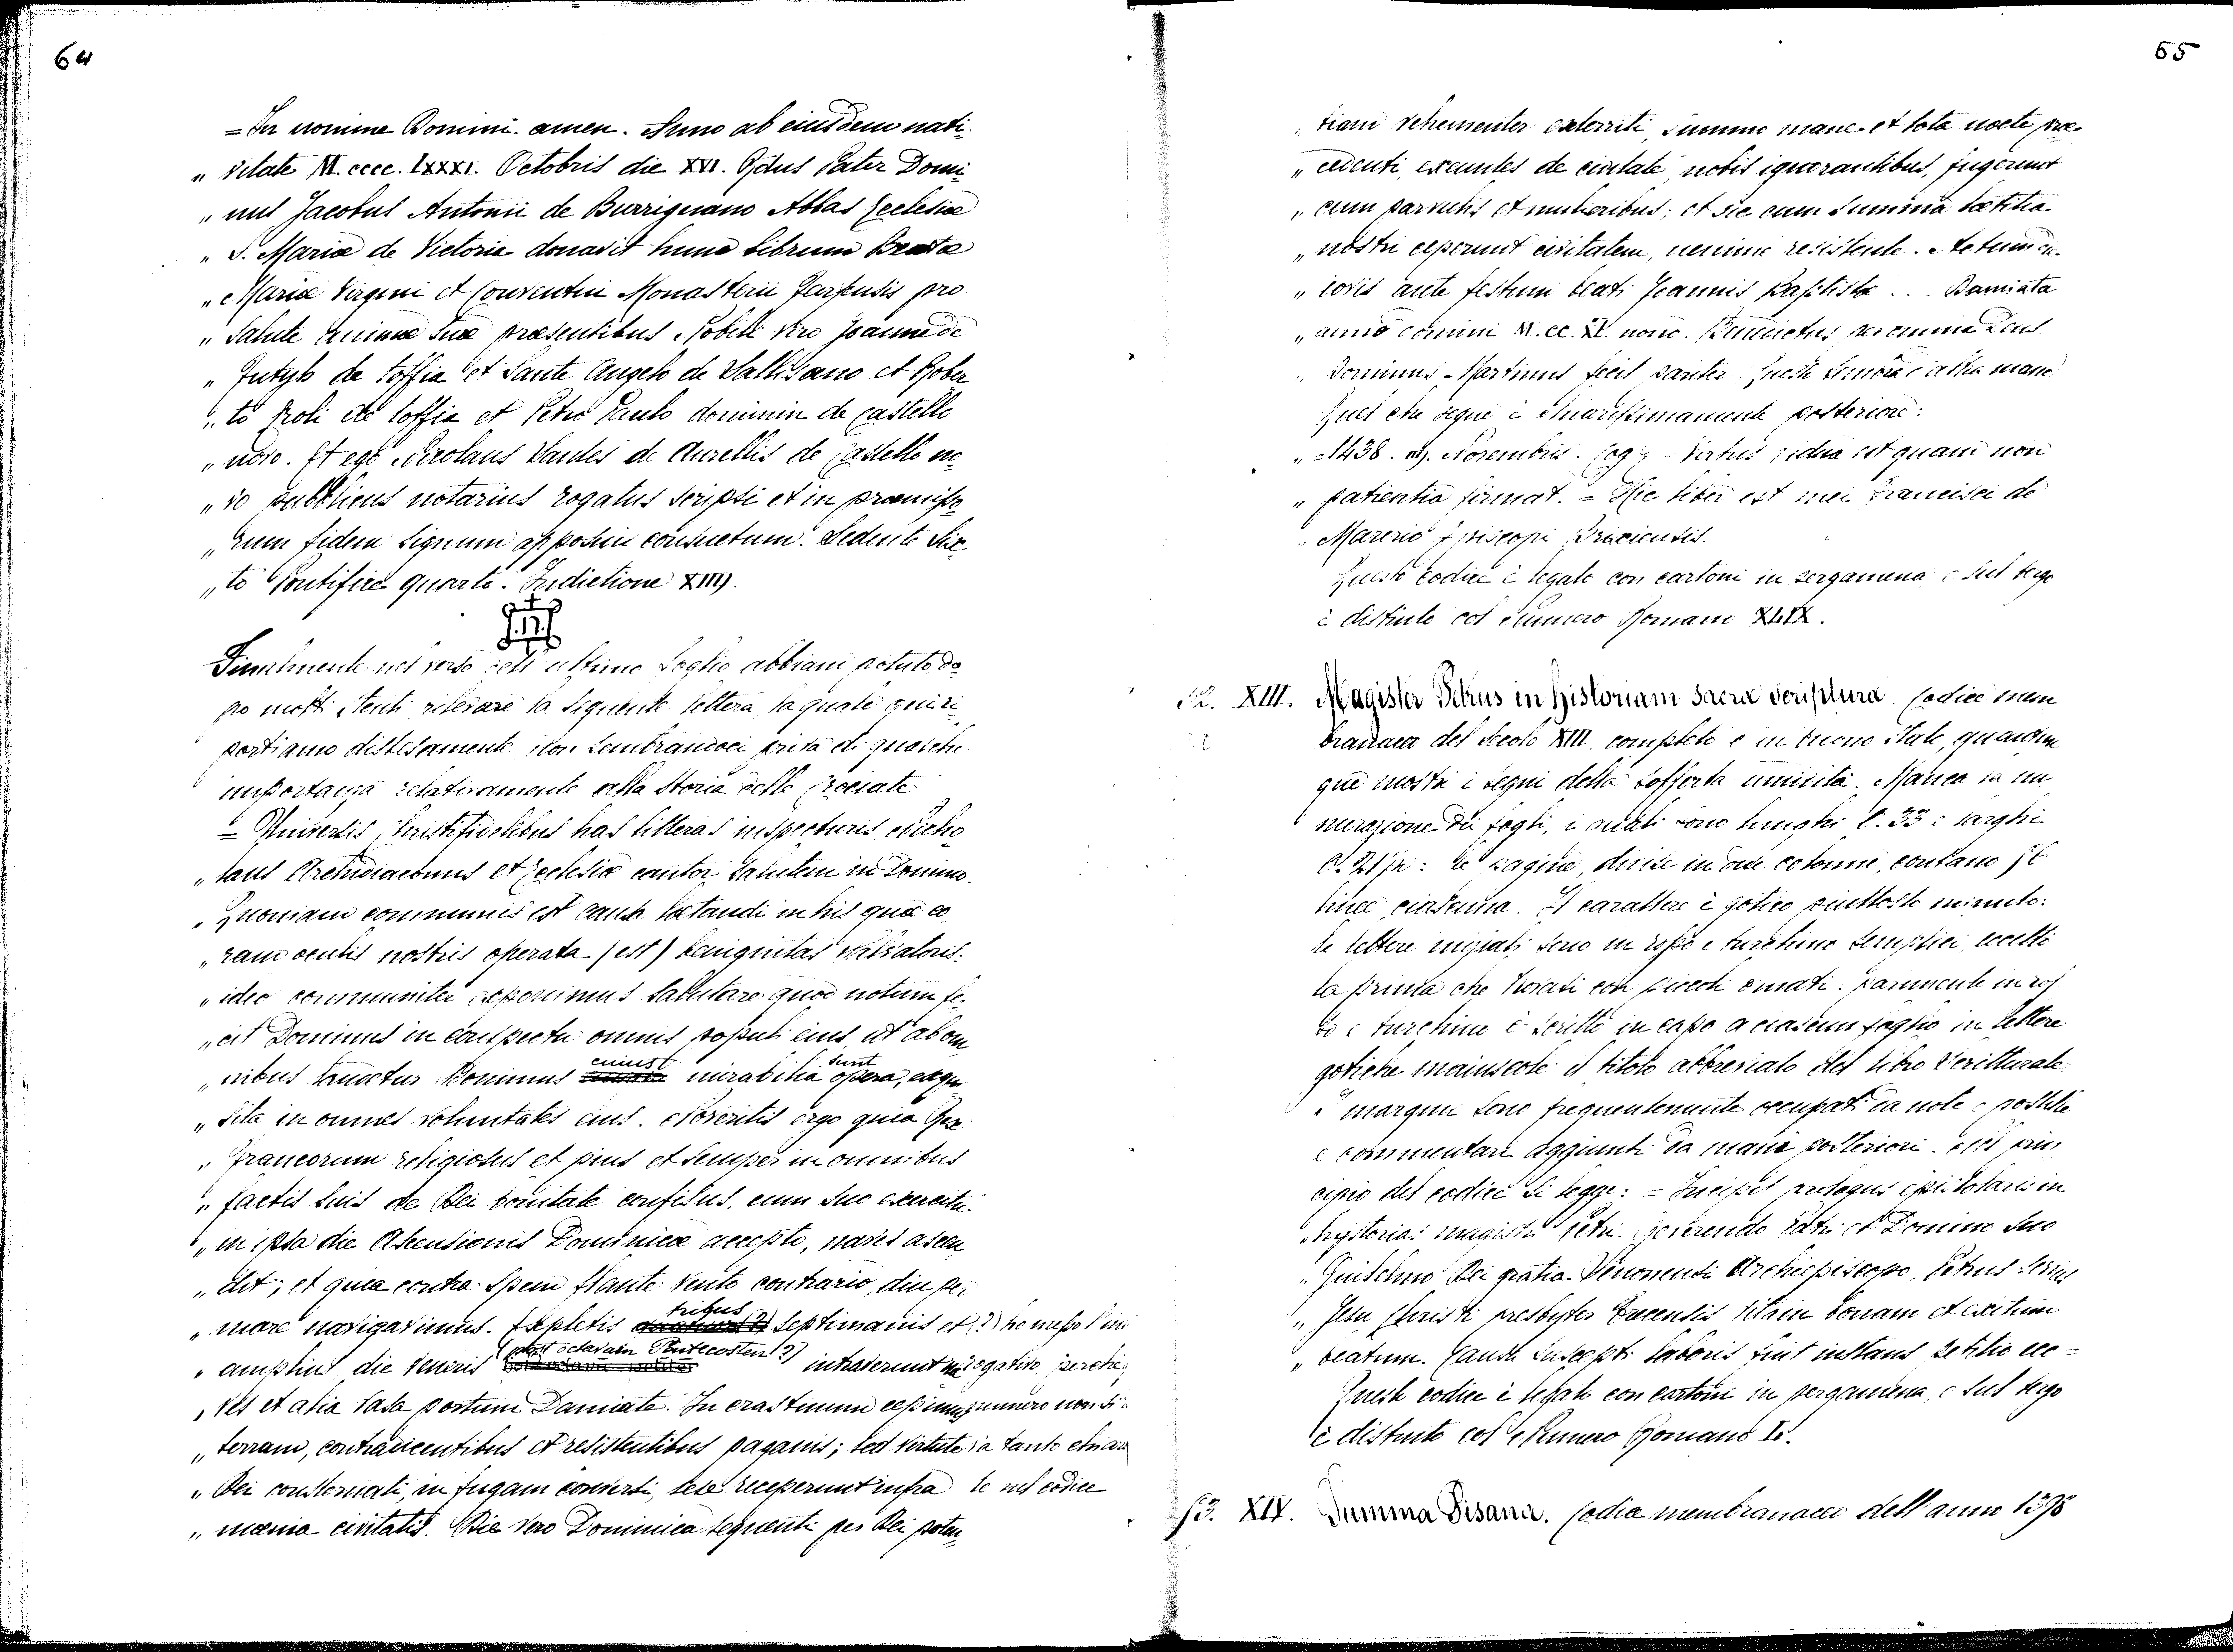 64
= In nomine Domini amen. Anno ab eiusdem nati-
„ vitate M.cccc.lxxxi. Octobris die XVI. Rdus Pater Domi-
„ nus Jacobus Antonii de Burrignano Abbas Ecclesiæ
„ S. Mariæ de Victoria donavit hunc librum Beatæ
„ Mariæ Virgini et Conventui Monasterii Farfensis pro
„ salute animæ suæ præsentibus Nobili viro Joanne de
„ de Toffia et Sante Angelo de et Rober-
„ to de Toffia et Petro Paulo de Castello
„ novo. Et ego Nicolaus Santes de Aurellis de Castello no-
„ vo publicus notarius rogatus scripsi et in præmisso-
„ rum fidem signum apposui consuetum. Sedente Six-
„ to Pontifice quarto. Indictione XIIIJ.
Finalmente nel verso dell'ultimo foglio abbiam potuto do-
po molti stenti rilevare la seguente lettera la quale qui ri-
portiamo distesamente non sembrandoci priva di qualche
importanza relativamente alla storia delle Crociate
= Universis Christifidelibus has litteras inspecturis Nicho-
„ laus Archidiaconus et Ecclesiæ cantor salutem in Domino.
„ Quoniam communis est causa lætandi in his quæ co-
„ ram oculis nostris operata (est) benignitas Salvatoris:
„ ideo communiter exponimus salutare quod notum fe-
„ cit Dominus in conspectu omnis populi eius, ut ab om-
„ nibus laudetur Dominus cuius mirabilia sunt opera, exqui-
„ sita in omnes voluntates eius. Noveritis ergo quia Rex
„ Francorum religiosus et pius et semper in omnibus
„ factis suis de Dei bonitate confisus, cum suo exercitu
„ in ipsa die Ascensionis Dominicæ accepto, naves ascen-
„ dit; et quia contra spem flante vento contrario, diu per
„ mare navigavimus. Expletis tribus septimanis et (?) ho messo l'in-
„ amplius die Veneris (post octavam Pentecosten?) intraverunt na- rogativo perchè
„ ves et alia vasa portum Damiate. In crastinum cepimus numero non si
„ terram, contradicentibus et resistentibus paganis; sed virtute ia tanto chiara
„ Dei consternati, in fugam conversi, sese receperunt infra te nel codice
„ mænia civitatis. Die vero Dominica sequenti per Dei poten-
65
„ tiam vehementer exterriti, summo mane et tota nocte præ-
„ cedenti, exeuntes de civitate, nobis ignorantibus, fugerunt
„ cum parvulis et mulieribus; et sic cum summa lætitia
„ nostri ceperunt civitatem, nemine resistente. Actum die
„ iovis ante festum beati Joannis Baptistæ ... Damiata
„ anno domini M.cc.XL. nono. Benedictus per omnia Deus.
„ Dominus Martinus fecit pariter. Questa è altra mano
Quel che segue è chiarissimamente posteriore:
„ = 1438. Novembris. Virtus vidua est quam non
„ patientia firmat. = Hic liber est mei Francisci de
„ Marerio Episcopi
Questo codice è legato con cartoni in pergamena, e sul tergo
è distinto col Numero Romano XLIX.
52. XIII. Magister Petrus in Historiam Sacræ Scripturæ. Codice mem-
branaceo del secolo XIII completo e in buono stato, quantun-
que mostri i segni della sofferta umidità. Manca la nu-
merazione dei fogli, i quali sono lunghi C. 33 : larghi
C. : le pagine, divise in due colonne, contano
linee ciascuna. Il carattere è gotico piuttosto minuto:
le lettere iniziali sono in rosso e turchino semplici, eccetto
la prima che trovasi con piccoli ornati. Parimente in ros-
so e turchino è scritto in capo a ciascun foglio in lettere
gotiche maiuscole il titolo abbreviato del libro Scritturale.
I margini sono frequentemente occupati da note e postille
e commentari aggiunti da mani posteriori. Nel prin-
cipio del codice si legge: = Incipit prologus epistolaris in
„ hystorias magistri Petri. Reverendo Patri et Domino suo
„ Guilelmo Dei gratia Senonensi Archiepiscopo, Petrus servus
„ Jesu Christi presbyter Trecensis vitam bonam et exitum
„ beatum. Causa suscepti laboris fuit instans petitio ecc =
Questo codice è legato con cartoni in pergamena, e sul tergo
è distinto col Numero Romano L.
53. XIV. Summa Pisana. Codice membranaceo dell'anno 1398